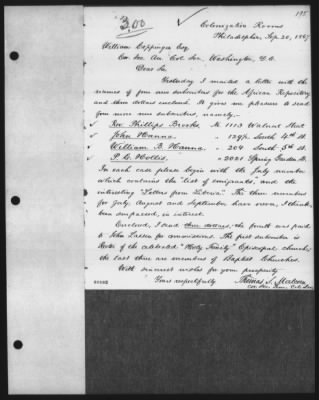 195
3.00 ✓ Colonization Rooms
Philadelphia, Sep. 20, 1867
William Coppinger Esq
Cor. Sec. Am. Col. Soc. Washington, D.C.
Dear Sir
Yesterday I mailed a letter with the
names of four new subscribers for the African Repository
and three dollars enclosed. It gives me pleasure to send
four more new subscribers, namely,-
✓ Rev. Phillips Brooks, No. 1113 Walnut Street
✓ John Hanna, " South 4th St.
✓ William B. Hanna " 204 South 5th St.
✓ P. C. Hollis. " 2021 Spring Garden St.
In each case please begin with the July number
which contains the list of emigrants, and the
interesting "Letters from Liberia". The three numbers
for July, August and September have never, I think,
been surpassed, in interest.
Enclosed, I send three dollars, the fourth was paid
to John for commissions. The first subscriber is
Rector of the celebrated "Holy Trinity" Episcopal church,
the last three are members of Baptist Churches.
With sincerest wishes for your prosperity
Yours respectfully Thomas S. Malcom
Cor. Sec. Penn. Col. Soc.